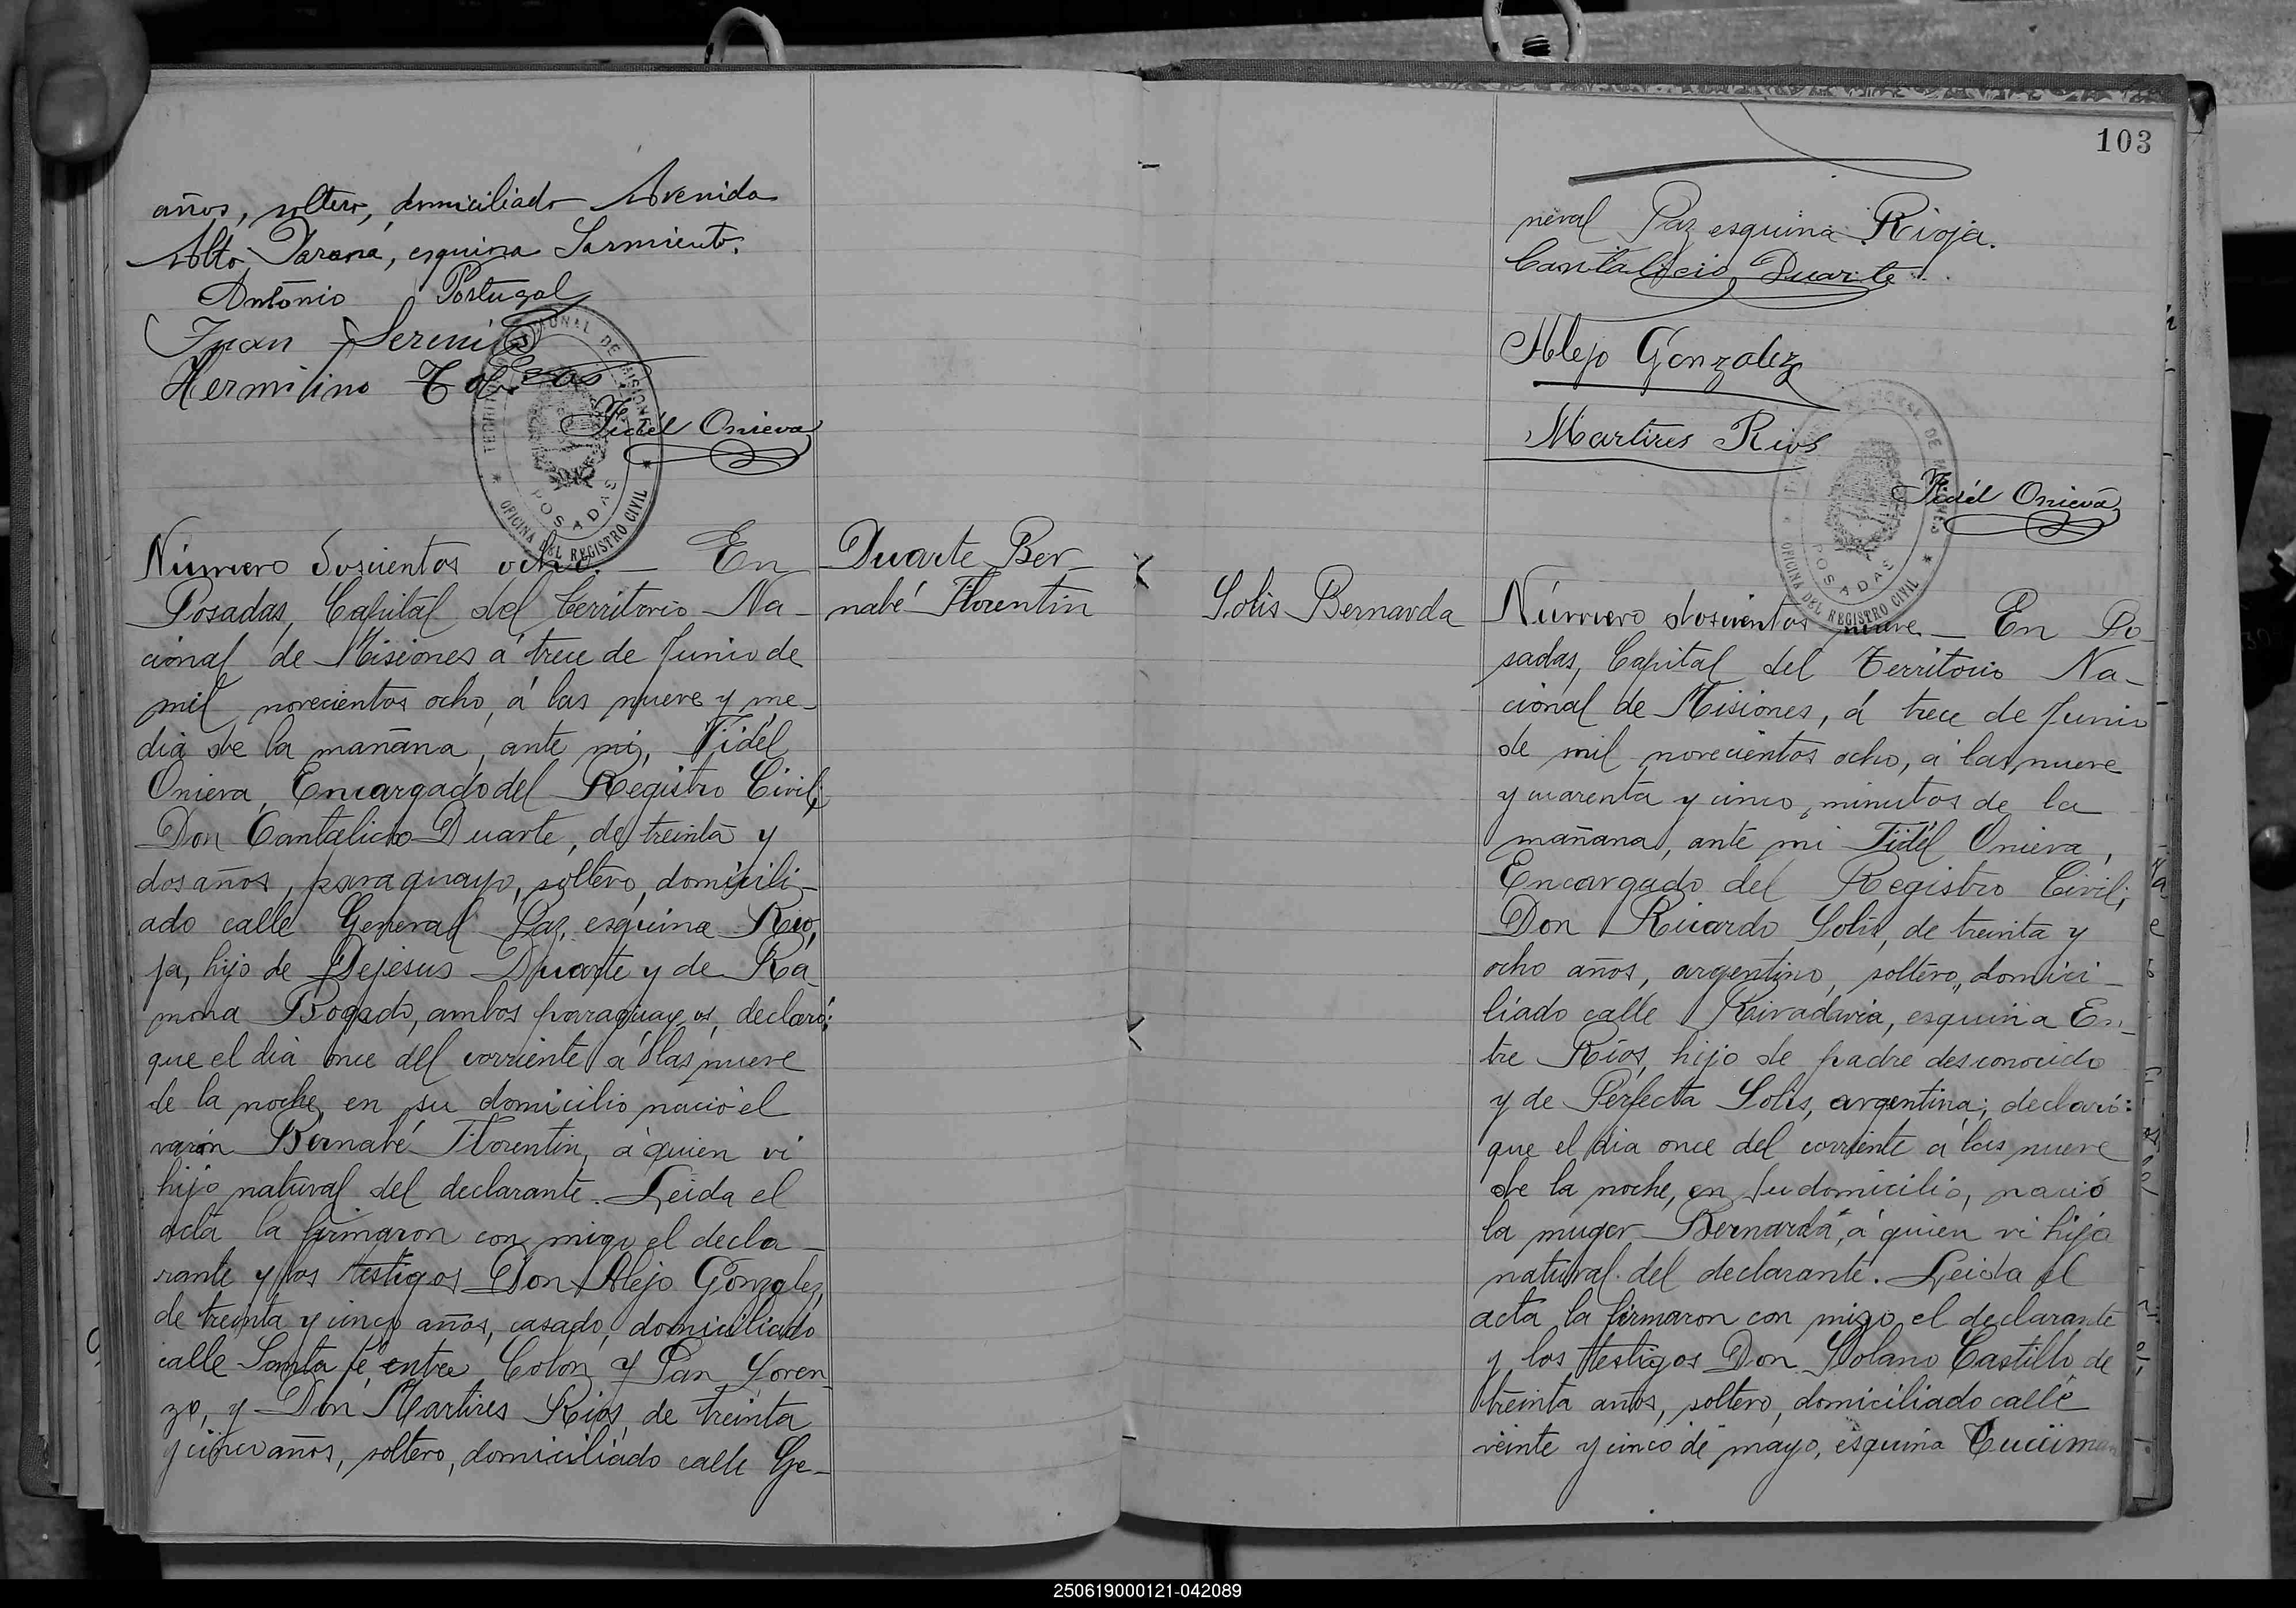 años, soltero, domiciliado Avenida
Alto Parana, esquina Sarmiento.
Antonio Portugal
Juan
Hermilino
Fidél Onieva
TERRITORIO NACIONAL DE MISIONES
POSADAS
OFICINA DEL REGISTRO CIVIL
Número doscientos ocho. — En
Posadas, Capital del Territorio Na-
cional de Misiones á trece de Junio de
mil novecientos ocho, á las nueve y me-
dia de la mañana, ante mi, Fidél
Onieva, Encargado del Registro Civil;
Don Cantalicio Duarte, de treinta y
dos años, paraguayo, soltero, domicili-
ado calle General Paz, esquina Rio,
ja, hijo de Dejesus Duarte y de Ra-
mona Bogado, ambos paraguayos, declaró:
que el dia once del corriente á las nueve
de la noche, en su domicilio nació el
varón Bernabé Florentin, á quien vi
hijo natural del declarante. Leida el
acta la firmaron con migo el decla-
rante y los testigos Don Alejo Gonzalez,
de treinta y cinco años, casado, domiciliado
calle Santa fé, entre Colon y San Loren-
zo, y Don Martires Rios, de treinta
y cinco años, soltero, domiciliado calle Ge-
Duarte Ber-
nabé Florentin
103
neral Paz esquina Rioja.
Cantalicio Duarte
Alejo Gonzalez
Martires Rios
Fidél Onieva
POSADAS
OFICINA DEL REGISTRO CIVIL
Solis Bernarda
Número doscientos nueve — En Po-
sadas, Capital del Territorio Na-
cional de Misiones, á trece de Junio
de mil novecientos ocho, á las nueve
y cuarenta y cinco minutos de la
mañana, ante mi Fidél Onieva,
Encargado del Registro Civil;
Don Ricardo Solis, de treinta y
ocho años, argentino, soltero, domici-
liado calle Rivadavia, esquina En-
tre Rios, hijo de padre desconocido
y de Perfecta Solis, argentina; declaró:
que el dia once del corriente á las nueve
de la noche, en su domicilio, nació
la muger Bernarda, á quien vi hija
natural del declarante. Leida el
acta la firmaron con migo el declarante
y los testigos Don Solano Castillo de
treinta años, soltero, domiciliado calle
veinte y cinco de mayo, esquina Tucuman
250619000121-042089